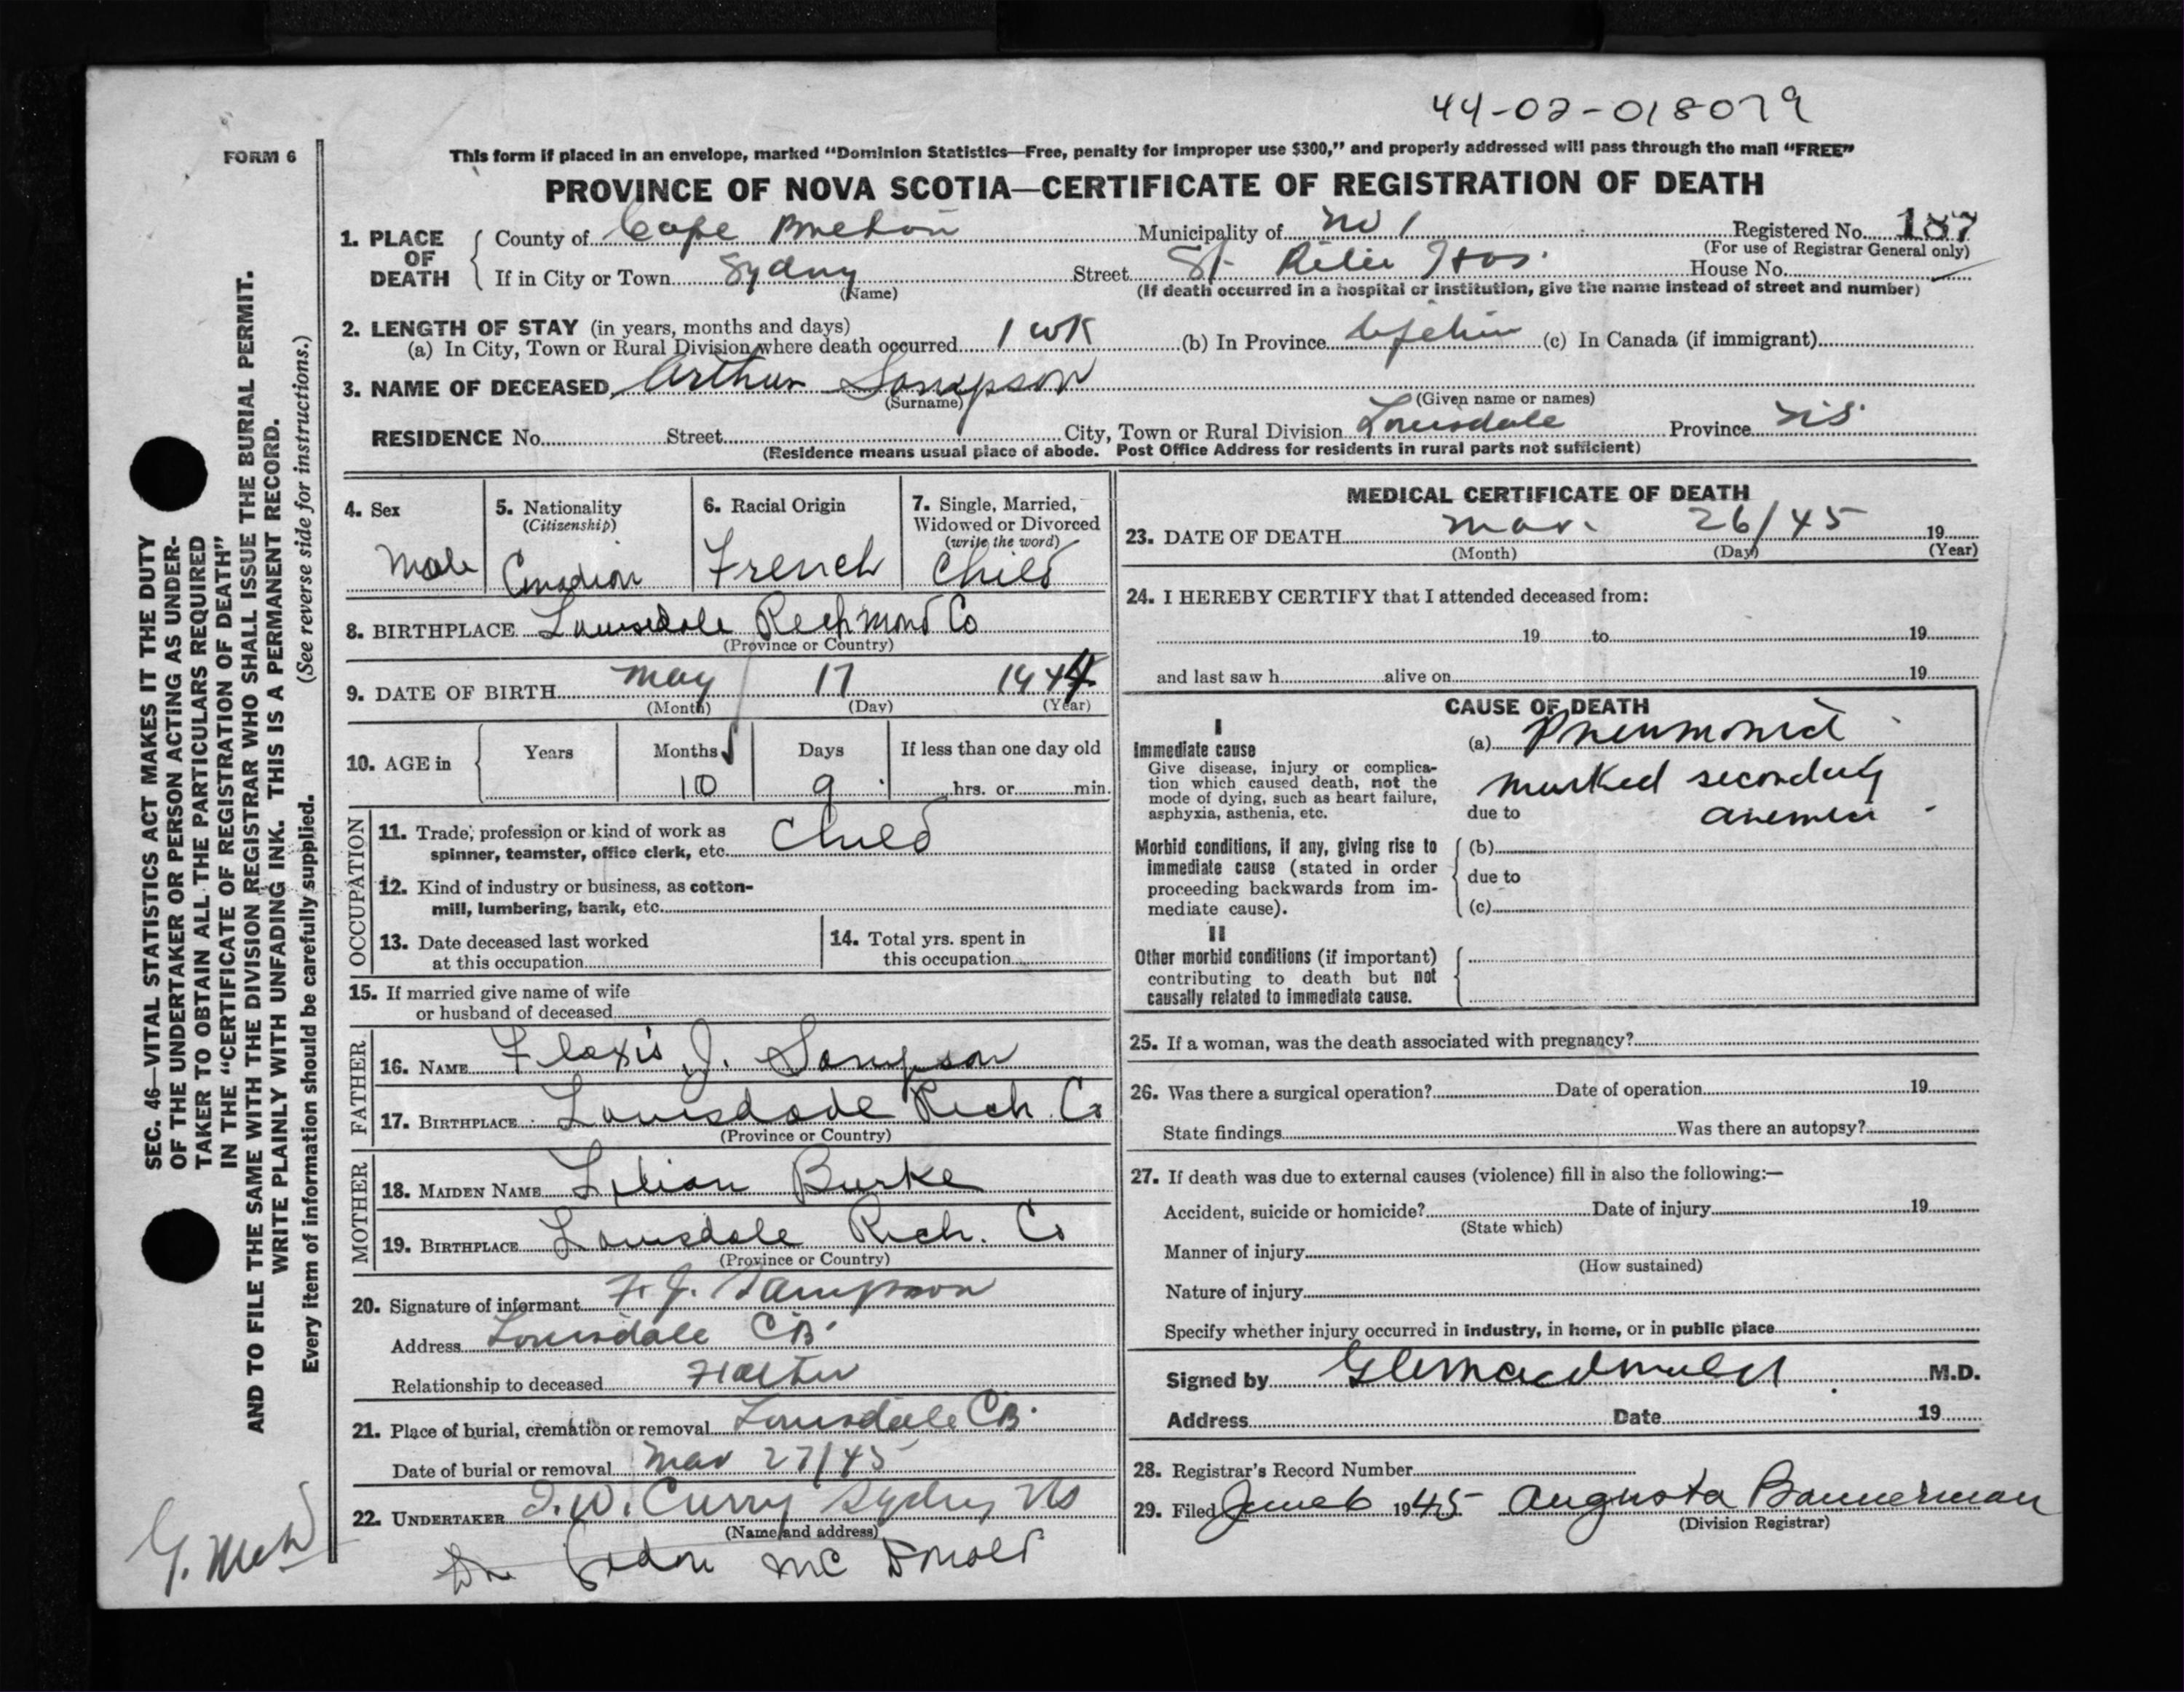 44-02-018079
FORM 6
This form if placed in an envelope, marked "Dominion Statistics—Free, penalty for improper use $300," and properly addressed will pass through the mail "FREE"
PROVINCE OF NOVA SCOTIA—CERTIFICATE OF REGISTRATION OF DEATH
1. PLACE OF DEATH
County of Cape Breton Municipality of No 1 Registered No. 187
(For use of Registrar General only)
If in City or Town Sydney Street St Hos. House No.
(Name) (If death occurred in a hospital or institution, give the name instead of street and number)
2. LENGTH OF STAY (in years, months and days)
(a) In City, Town or Rural Division where death occurred 1 wk (b) In Province Lifetime (c) In Canada (if immigrant)
3. NAME OF DECEASED Arthur Sampson
(Surname) (Given name or names)
RESIDENCE No. Street City, Town or Rural Division Louisdale Province N.S.
(Residence means usual place of abode. Post Office Address for residents in rural parts not sufficient)
4. Sex
Male
5. Nationality
(Citizenship)
Canadian
6. Racial Origin
French
7. Single, Married,
Widowed or Divorced
(write the word)
Child
8. BIRTHPLACE Louisdale Richmond Co
(Province or Country)
9. DATE OF BIRTH May 17 1944
(Month) (Day) (Year)
10. AGE in Years Months Days If less than one day old
10 9 hrs. or min.
OCCUPATION
11. Trade, profession or kind of work as
spinner, teamster, office clerk, etc. Child
12. Kind of industry or business, as cotton-
mill, lumbering, bank, etc.
13. Date deceased last worked
at this occupation
14. Total yrs. spent in
this occupation
15. If married give name of wife
or husband of deceased
FATHER
16. NAME Flexis J. Sampson
17. BIRTHPLACE Louisdale Rich. Co
(Province or Country)
MOTHER
18. MAIDEN NAME Lilian Burke
19. BIRTHPLACE Louisdale Rich. Co
(Province or Country)
20. Signature of informant F. J. Sampson
Address Louisdale CB
Relationship to deceased Father
21. Place of burial, cremation or removal Louisdale CB
Date of burial or removal Mar 27/45
22. UNDERTAKER Curry Sydney NS
(Name and address)
Dr Mc Donald
MEDICAL CERTIFICATE OF DEATH
23. DATE OF DEATH Mar. 26/45 19
(Month) (Day) (Year)
24. I HEREBY CERTIFY that I attended deceased from:
19 to 19
and last saw h alive on 19
CAUSE OF DEATH
I
Immediate cause
Give disease, injury or complica-
tion which caused death, not the
mode of dying, such as heart failure,
asphyxia, asthenia, etc.
(a) Pneumonia
marked secondary
due to anemia
Morbid conditions, if any, giving rise to
immediate cause (stated in order
proceeding backwards from im-
mediate cause).
(b)
due to
(c)
II
Other morbid conditions (if important)
contributing to death but not
causally related to immediate cause.
25. If a woman, was the death associated with pregnancy?
26. Was there a surgical operation? Date of operation 19
State findings Was there an autopsy?
27. If death was due to external causes (violence) fill in also the following:—
Accident, suicide or homicide? Date of injury 19
(State which)
Manner of injury
(How sustained)
Nature of injury
Specify whether injury occurred in industry, in home, or in public place
Signed by M.D.
Address Date 19
28. Registrar's Record Number
29. Filed June 6 1945 Augusta Bannerman
(Division Registrar)
SEC. 46—VITAL STATISTICS ACT MAKES IT THE DUTY
OF THE UNDERTAKER OR PERSON ACTING AS UNDER-
TAKER TO OBTAIN ALL THE PARTICULARS REQUIRED
IN THE "CERTIFICATE OF REGISTRATION OF DEATH"
AND TO FILE THE SAME WITH THE DIVISION REGISTRAR WHO SHALL ISSUE THE BURIAL PERMIT.
WRITE PLAINLY WITH UNFADING INK. THIS IS A PERMANENT RECORD.
Every item of information should be carefully supplied. (See reverse side for instructions.)